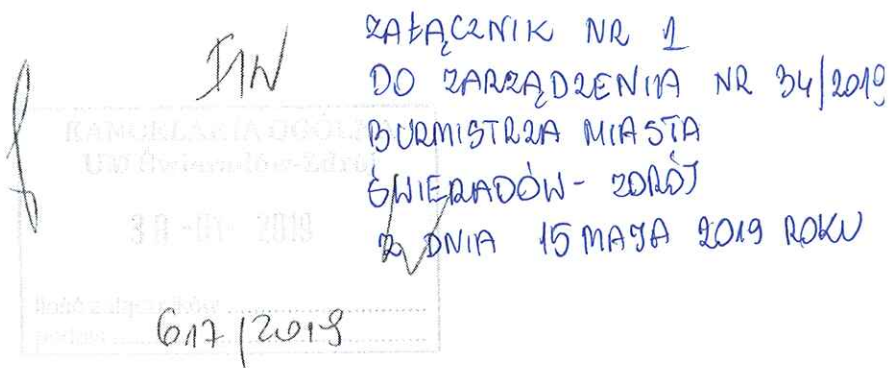 IIW
ZAŁĄCZNIK NR 1
DO ZARZĄDZENIA NR 34/2019
BURMISTRZA MIASTA
ŚWIERADÓW-ZDRÓJ
Z DNIA 15 MAJA 2019 ROKU
KANCELARIA OGÓLNA
UM Świeradów-Zdrój
30 -01- 2019
Ilość załączników
podpis
617/2019